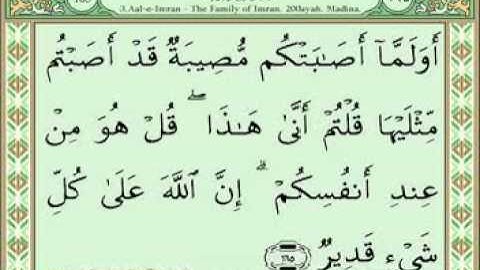 3.Aal-e-Imran - The Family of Imran. 200ayah. Madina.
أَوَلَمَّآ أَصَـٰبَتْكُم مُّصِيبَةٌ قَدْ أَصَبْتُم
مِّثْلَيْهَا قُلْتُمْ أَنَّىٰ هَـٰذَا ۖ قُلْ هُوَ مِنْ
عِندِ أَنفُسِكُمْ ۗ إِنَّ ٱللَّهَ عَلَىٰ كُلِّ
شَىْءٍ قَدِيرٌ ١٦٥